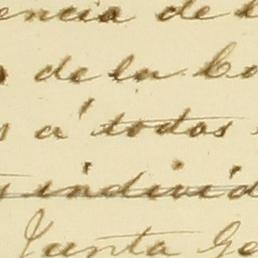 encia de l
de la Co
a' todos
individ
Junta Ge